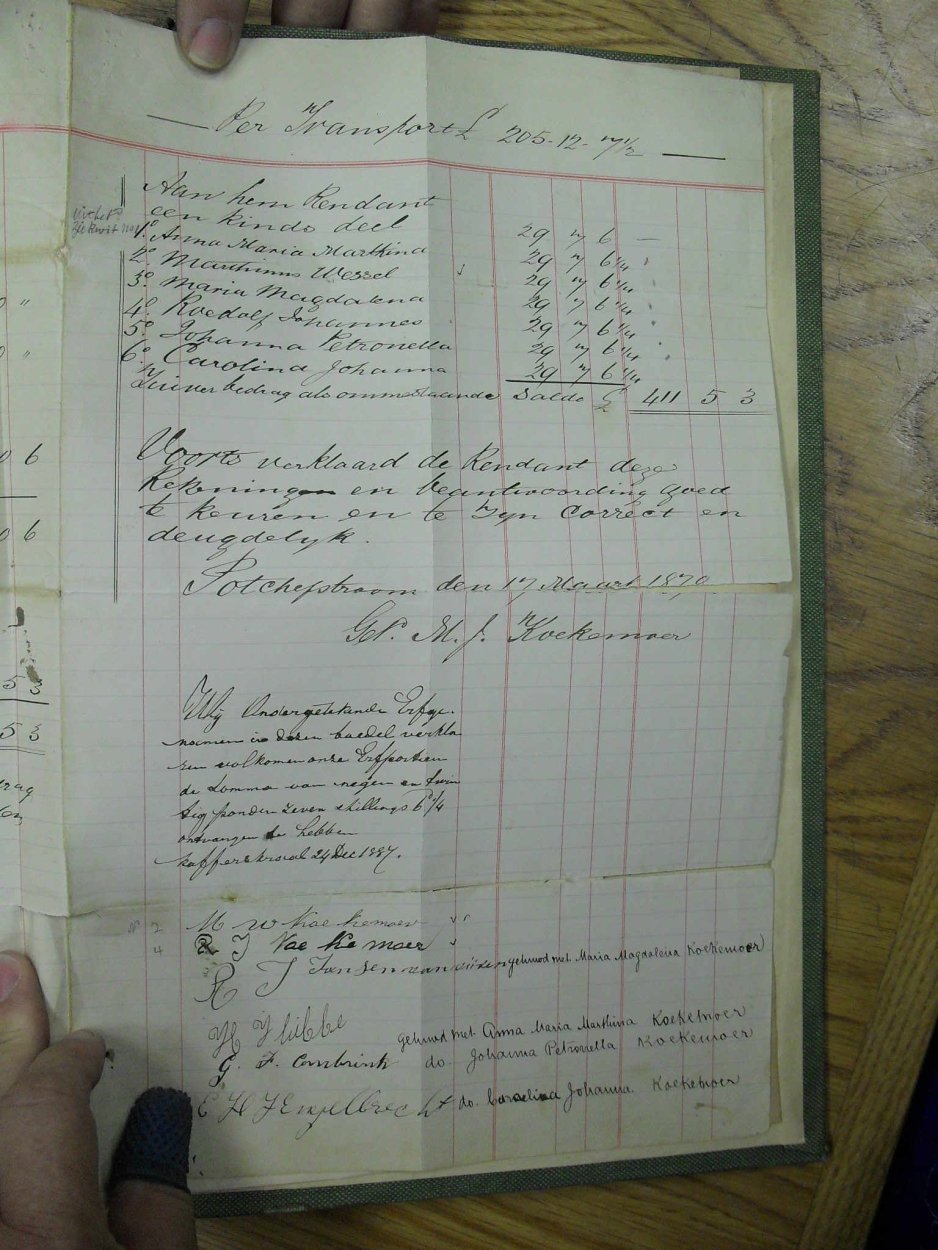 Per Transport £ 205-12-7½
Aan hem Rendant
een kinds deel 29 7 6 —
1o. Anna Maria Marthina 29 7 6 1/4
2o. Marthinus Wessel 29 7 6 1/4
3o. Maria Magdalena 29 7 6 1/4
4o. Roedolf Johannes 29 7 6 1/4
5o. Johanna Petronella 29 7 6 1/4
6o. Carolina Johanna 29 7 6 1/4
Zuiver bedrag als ommestaande Saldo £ 411 5 3
Voorts verklaard de Rendant deze
Rekening en beantwoording goed
te keuren en te zyn correct en
deugdelyk.
Potchefstroom den 17 Maart 1879
Get. M. J. Koekemoer
Wij Ondergetekende Erfge-
namen in dezen boedel verkla
ren volkomen onze Erfportien
de Somma van negen en twin
tig ponden zeven shillings 6d 1/4
ontvangen te hebben
Kafferskraal 24 Dec 1887.
No 2 M W Koekemoer
4 R J Koekemoer
R J Jansen van gehuwd met Maria Magdalena Koekemoer
H J Lübbe gehuwd met Anna Maria Marthina Koekemoer
G. F. Combrink do. Johanna Petronella Koekemoer
C H J Engelbrecht do. Carolina Johanna Koekemoer
0 "
0 "
0 6
0 6
5 3